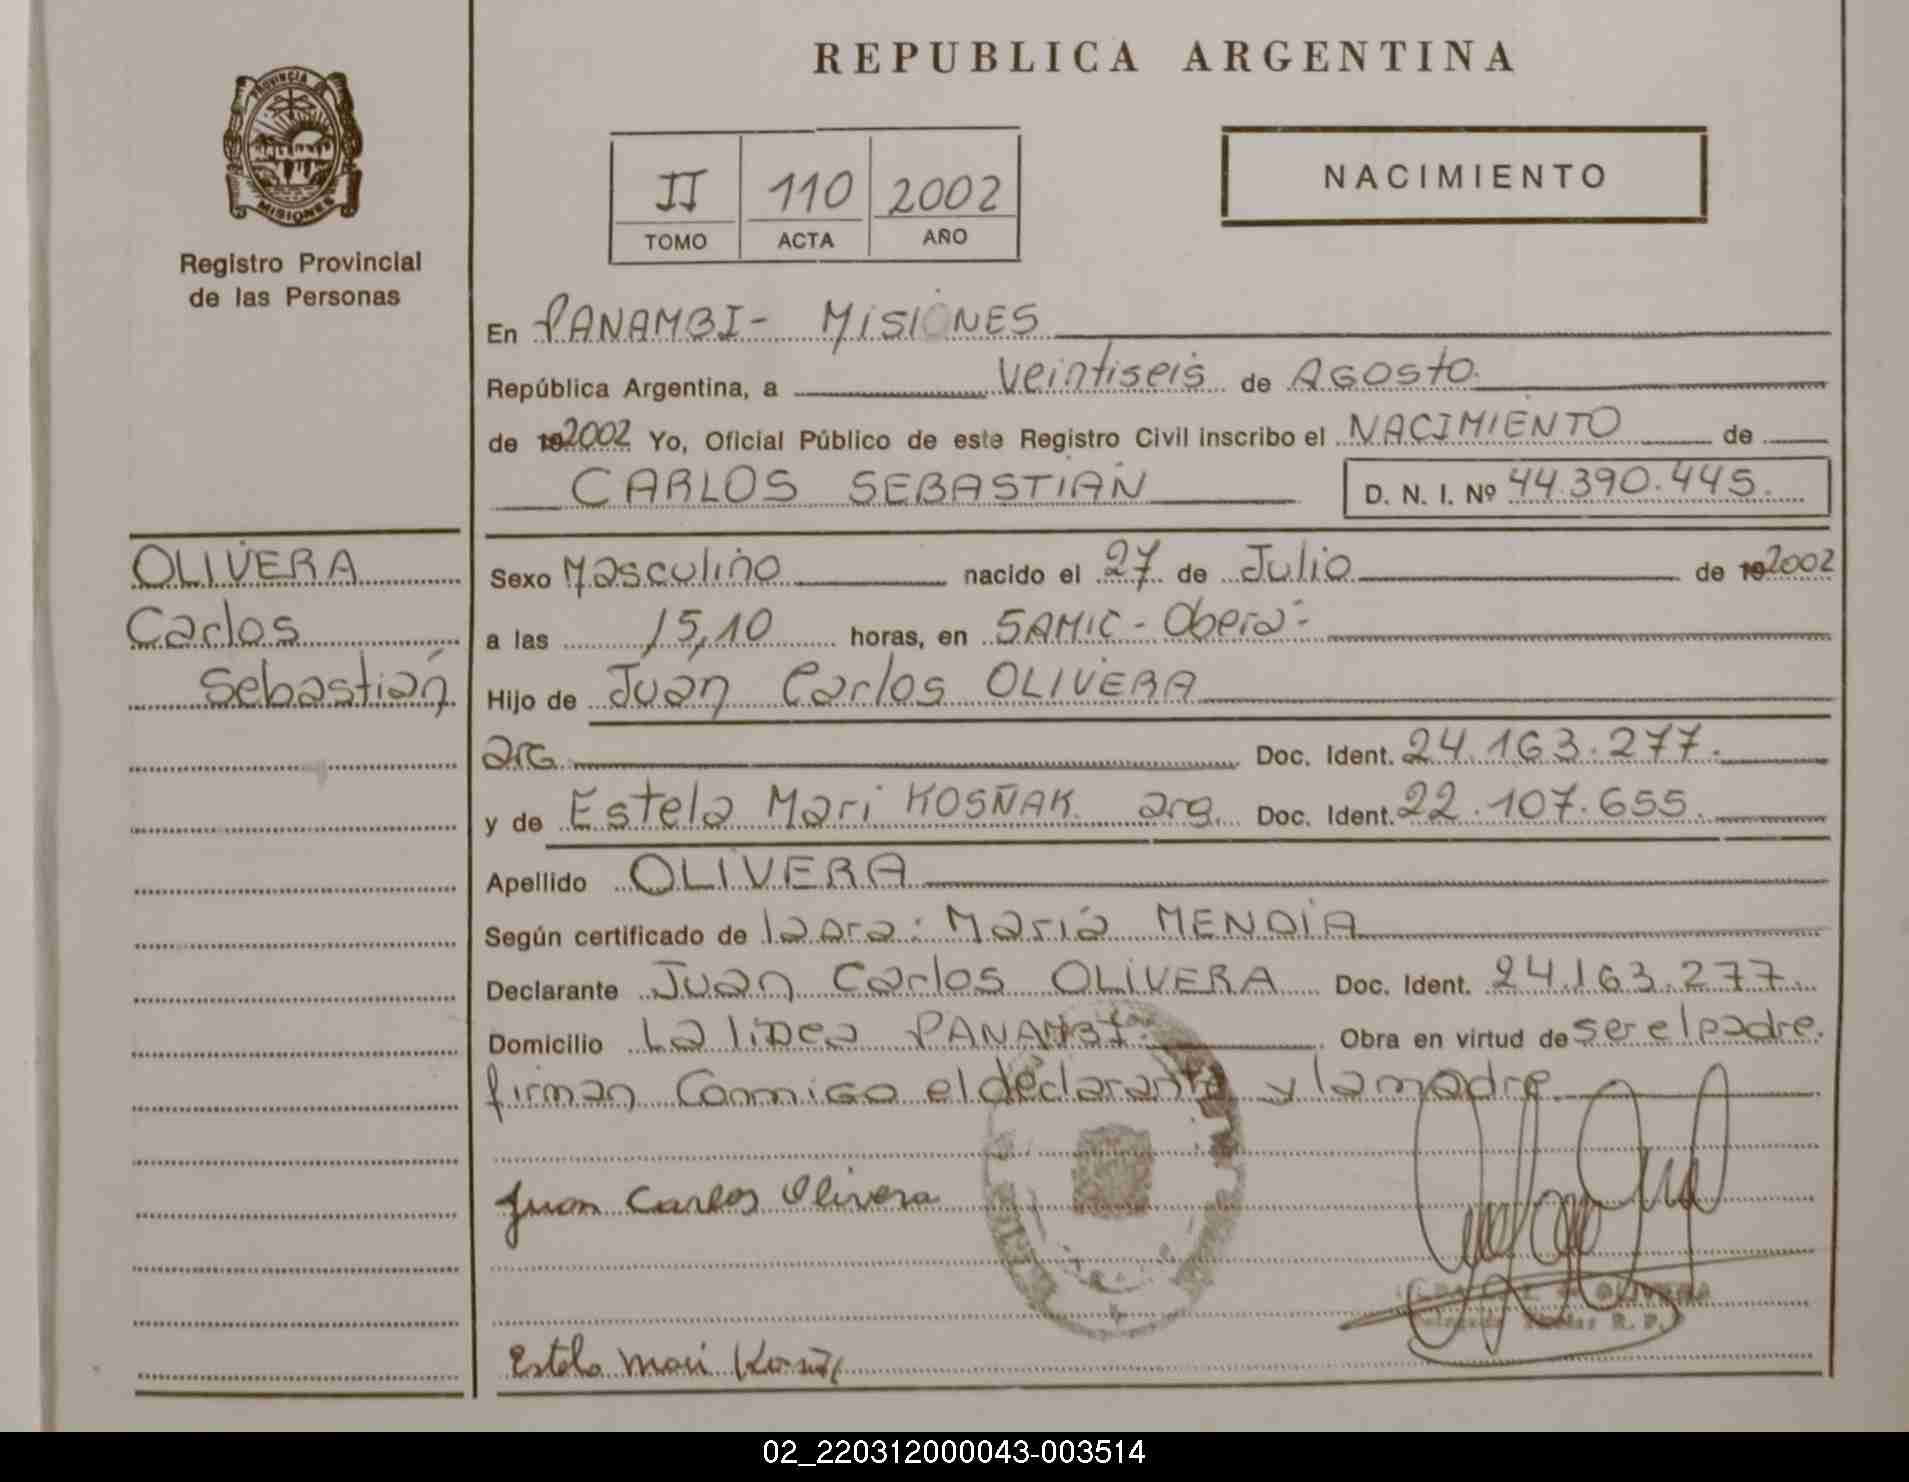 REPUBLICA ARGENTINA
PROVINCIA DE
MISIONES
Registro Provincial
de las Personas
II 110 2002
TOMO ACTA AÑO
NACIMIENTO
En PANAMBI- MISIONES
República Argentina, a Veintiseis de AGOSTO
de 192002 Yo, Oficial Público de este Registro Civil inscribo el NACIMIENTO de
CARLOS SEBASTIÁN D. N. I. Nº 44.390.445.
OLIVERA
Carlos
Sebastián
Sexo Masculino nacido el 27 de Julio de 192002
a las 15,10 horas, en SAMIC - Oberá-
Hijo de Juan Carlos OLIVERA
arg Doc. Ident. 24.163.277.
y de Estela Mari KOSÑAK arg. Doc. Ident. 22.107.655.
Apellido OLIVERA
Según certificado de la Dra: María MENDÍA
Declarante Juan Carlos OLIVERA Doc. Ident. 24.163.277.
Domicilio La línea PANAMBI. Obra en virtud de ser el padre.
firman Conmigo el declarante y la madre
Juan Carlos Olivera
de OLIVERA
R. P.
Estela Mari
02_220312000043-003514